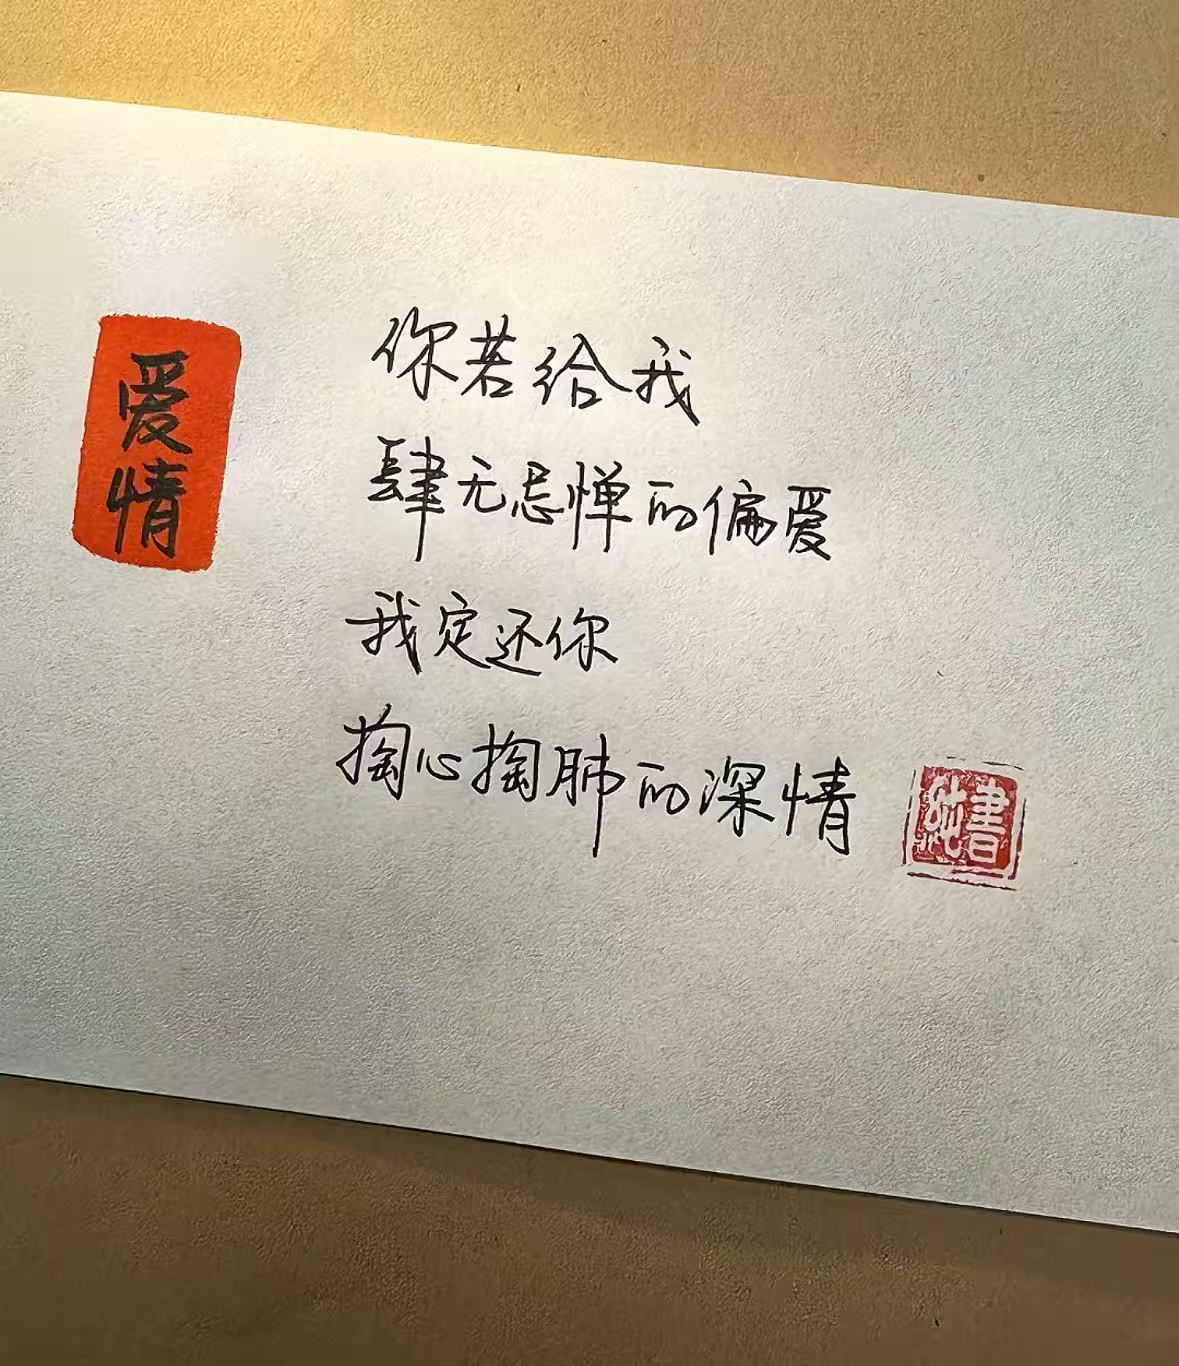 爱情
你若给我
肆无忌惮的偏爱
我定还你
掏心掏肺的深情